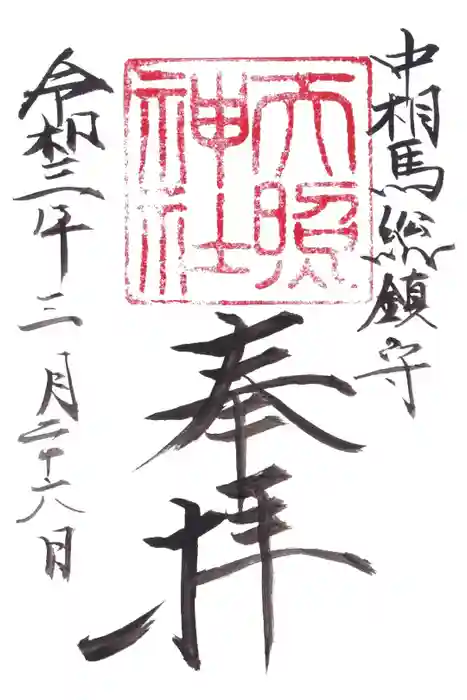 中相馬総鎮守
天照
神社
奉拝
令和三年三月二十六日